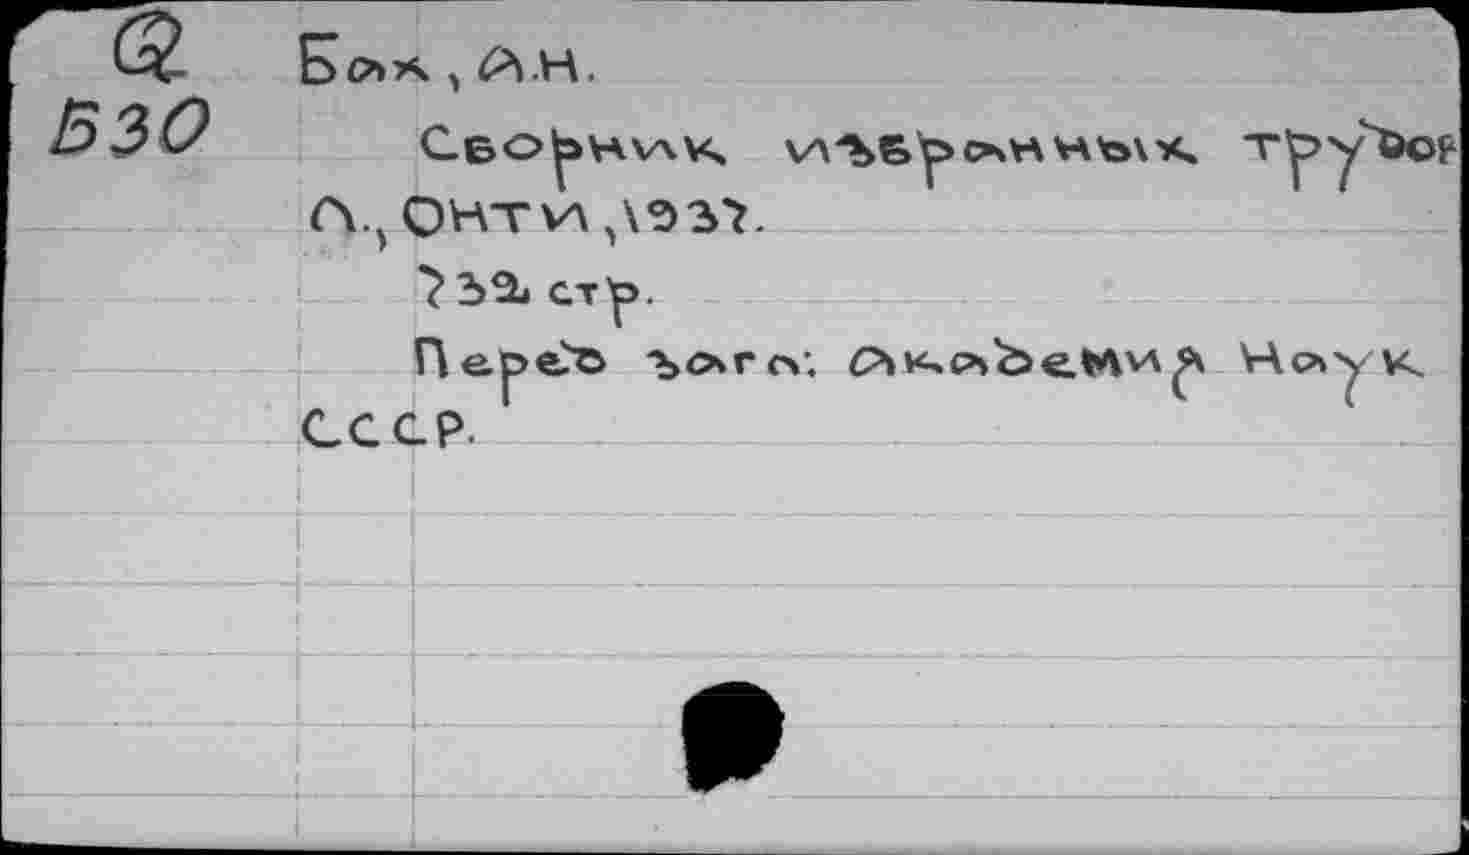 Q Бах, А.Н.
Б30 Сборник избранных трудов
Л., ОНТИ, 1937.
732 стр.
Перед загл: Академия Наук
СССР.